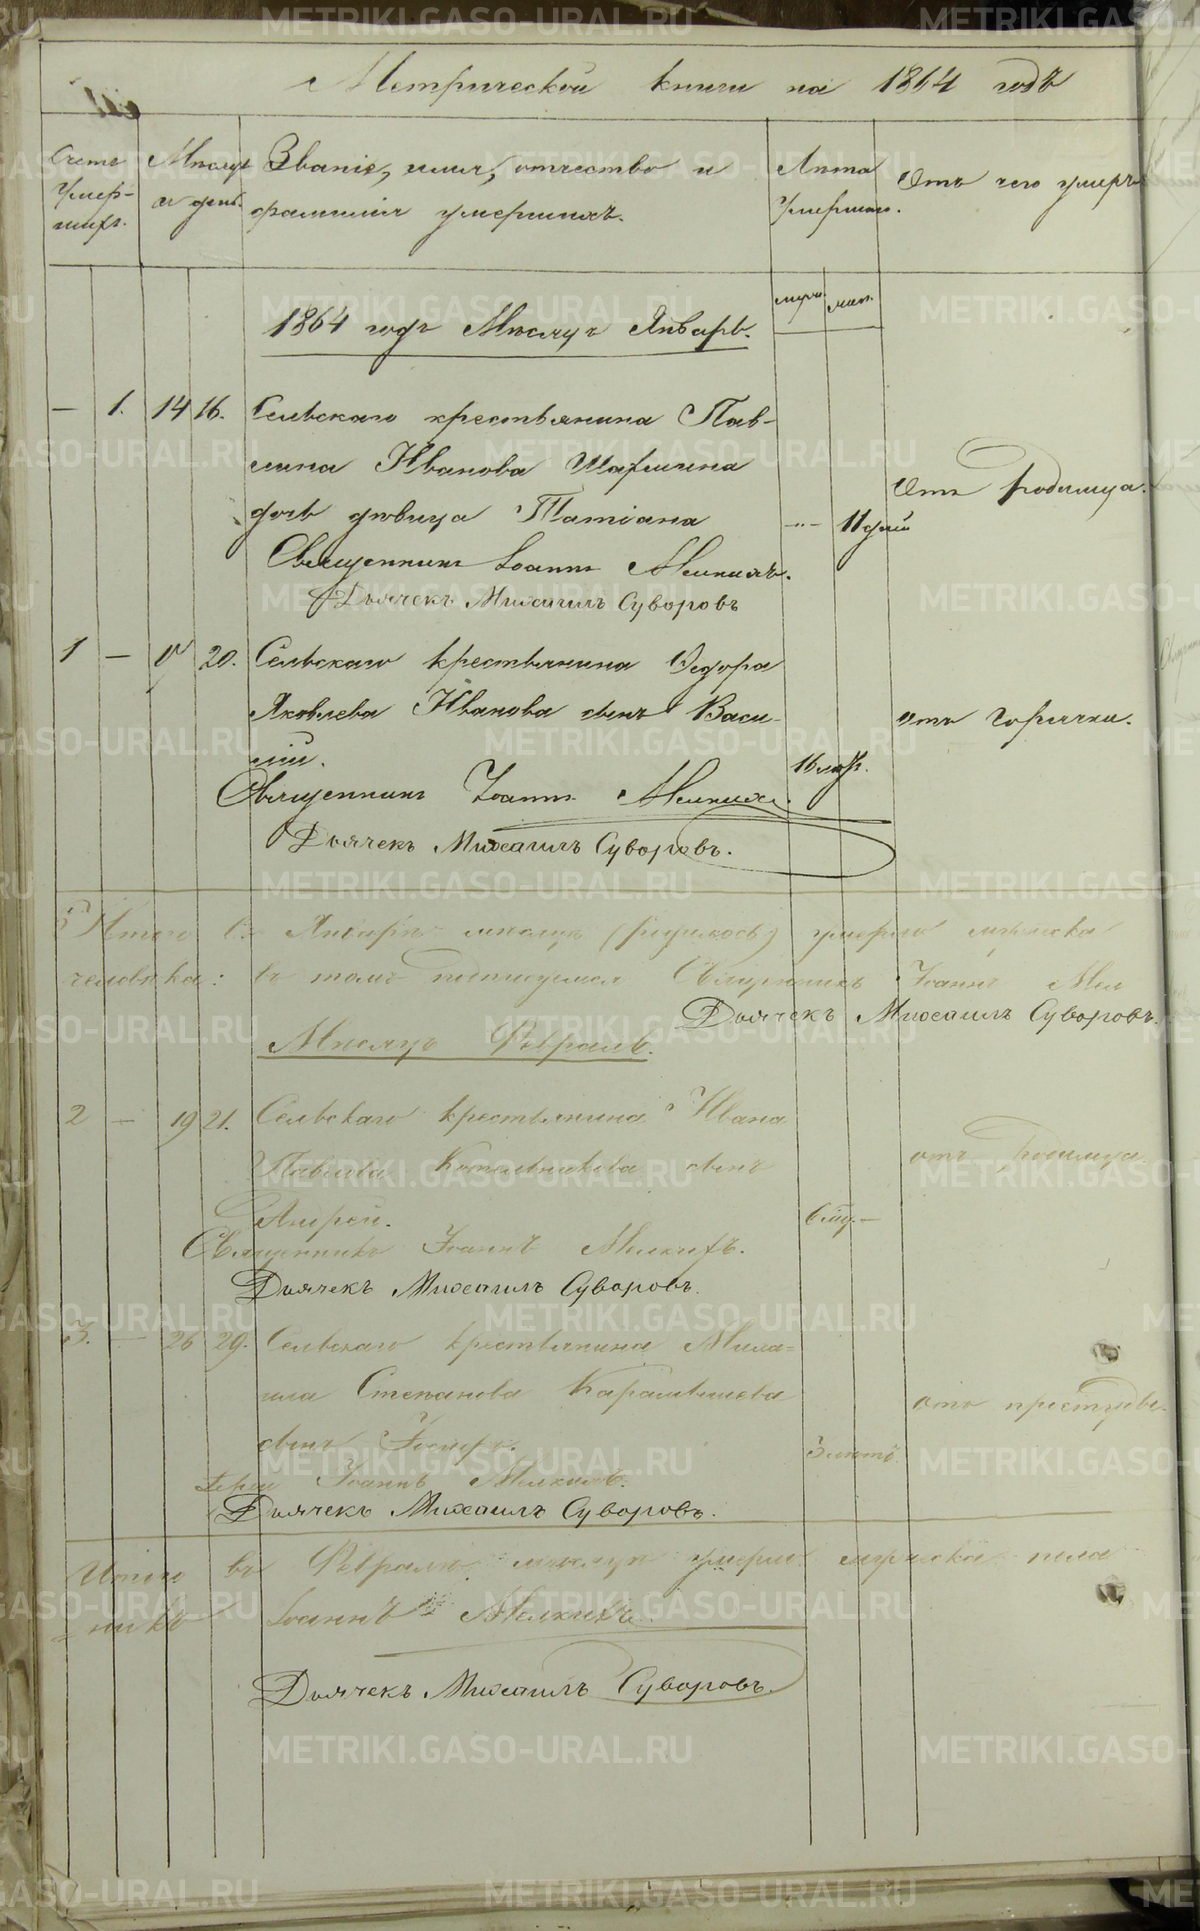 Метрической книги на 1864 годъ
Счетъ умер-шихъ.
Мѣсяцъ и день.
Званіе, имя, отчество и фамилія умершихъ.
Лѣта умершаго.
Отъ чего умеръ
муж. жен.
1864 годъ Мѣсяцъ Январь.
— 1. 14 16. Сельскаго крестьянина Пав-
лина Иванова
дочь дѣвица Татіана — 11 дней
Отъ родимца.
Священникъ Іоаннъ Мелкихъ.
Дьячекъ Михаилъ Суворовъ
1 — 17 20. Сельскаго крестьянина Ѳедора
Яковлева Иванова сынъ Васи-
лій. 16 лѣтъ.
отъ горячки.
Священникъ Іоаннъ Мелкихъ.
Дьячекъ Михаилъ Суворовъ.
Итого въ Январѣ мѣсяцѣ умерло
человѣка: въ томъ подписуемся Священникъ Іоаннъ Мел
Дьячекъ Михаилъ Суворовъ.
Мѣсяцъ Февраль.
2 — 19 21. Сельскаго крестьянина Ивана
Павлова Котельникова сынъ
Андрей.
отъ родимца
Священникъ Іоаннъ Мелкихъ.
Дьячекъ Михаилъ Суворовъ.
3. — 26 29. Сельскаго крестьянина Миха=
ила Степанова Карамышева
сынъ Іосифъ. 3 лѣтъ
отъ простуды.
Іерей Іоаннъ Мелкихъ.
Дьячекъ Михаилъ Суворовъ.
Итого въ Февралѣ мѣсяцѣ умерли мужеска пола
Іоаннъ Мелкихъ
Дьячекъ Михаилъ Суворовъ.
METRIKI.GASO-URAL.RU